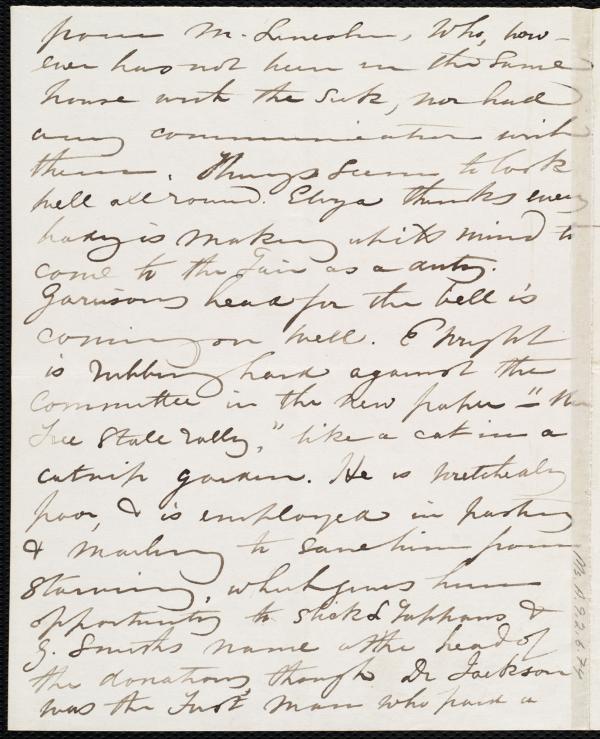 from M. Lincoln, Who, how-
ever has not been in the same
house with the Sick, nor had
any communication with
them. Things seem to look
well all round. Eliza thinks every
body is making up its mind to
come to the Fair as a duty.
Garrisons head for the bell is
coming on well. E Wright
is rubbing hard against the
committee in the new paper - "the
Free State rally," like a cat in a
catnip garden. He is wretchedly
poor, & is employed in
& to save him from
starving, which gives him
opportunity to stick L Tappans &
G. Smiths name at the head of
the donations, though Dr Jackson
was the first man who paid a
Ms A.9.2.6.74